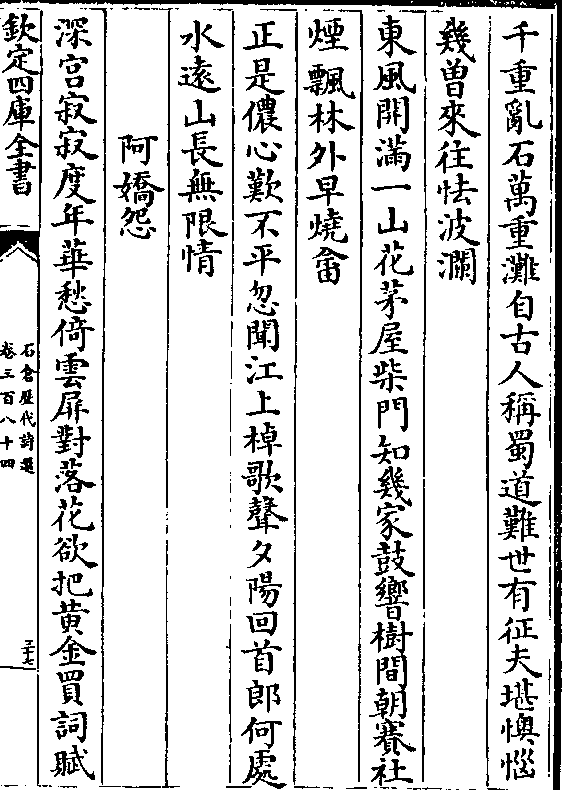 千重亂石萬重灘自古人稱蜀道難世有征夫堪懊惱
幾曽來往怯波瀾
東風開滿一山花茅屋柴門知幾家鼓響樹間朝賽社
煙飄林外早燒畬
正是儂心歎不平忽聞江上棹歌聲夕陽回首郎何處
水遠山長無限情
阿嬌怨
深宫寂寂度年華愁倚雲屏對落花欲把黄金買詞賦
欽定四庫全書
石倉歷代詩選
卷三百八十四
三十七